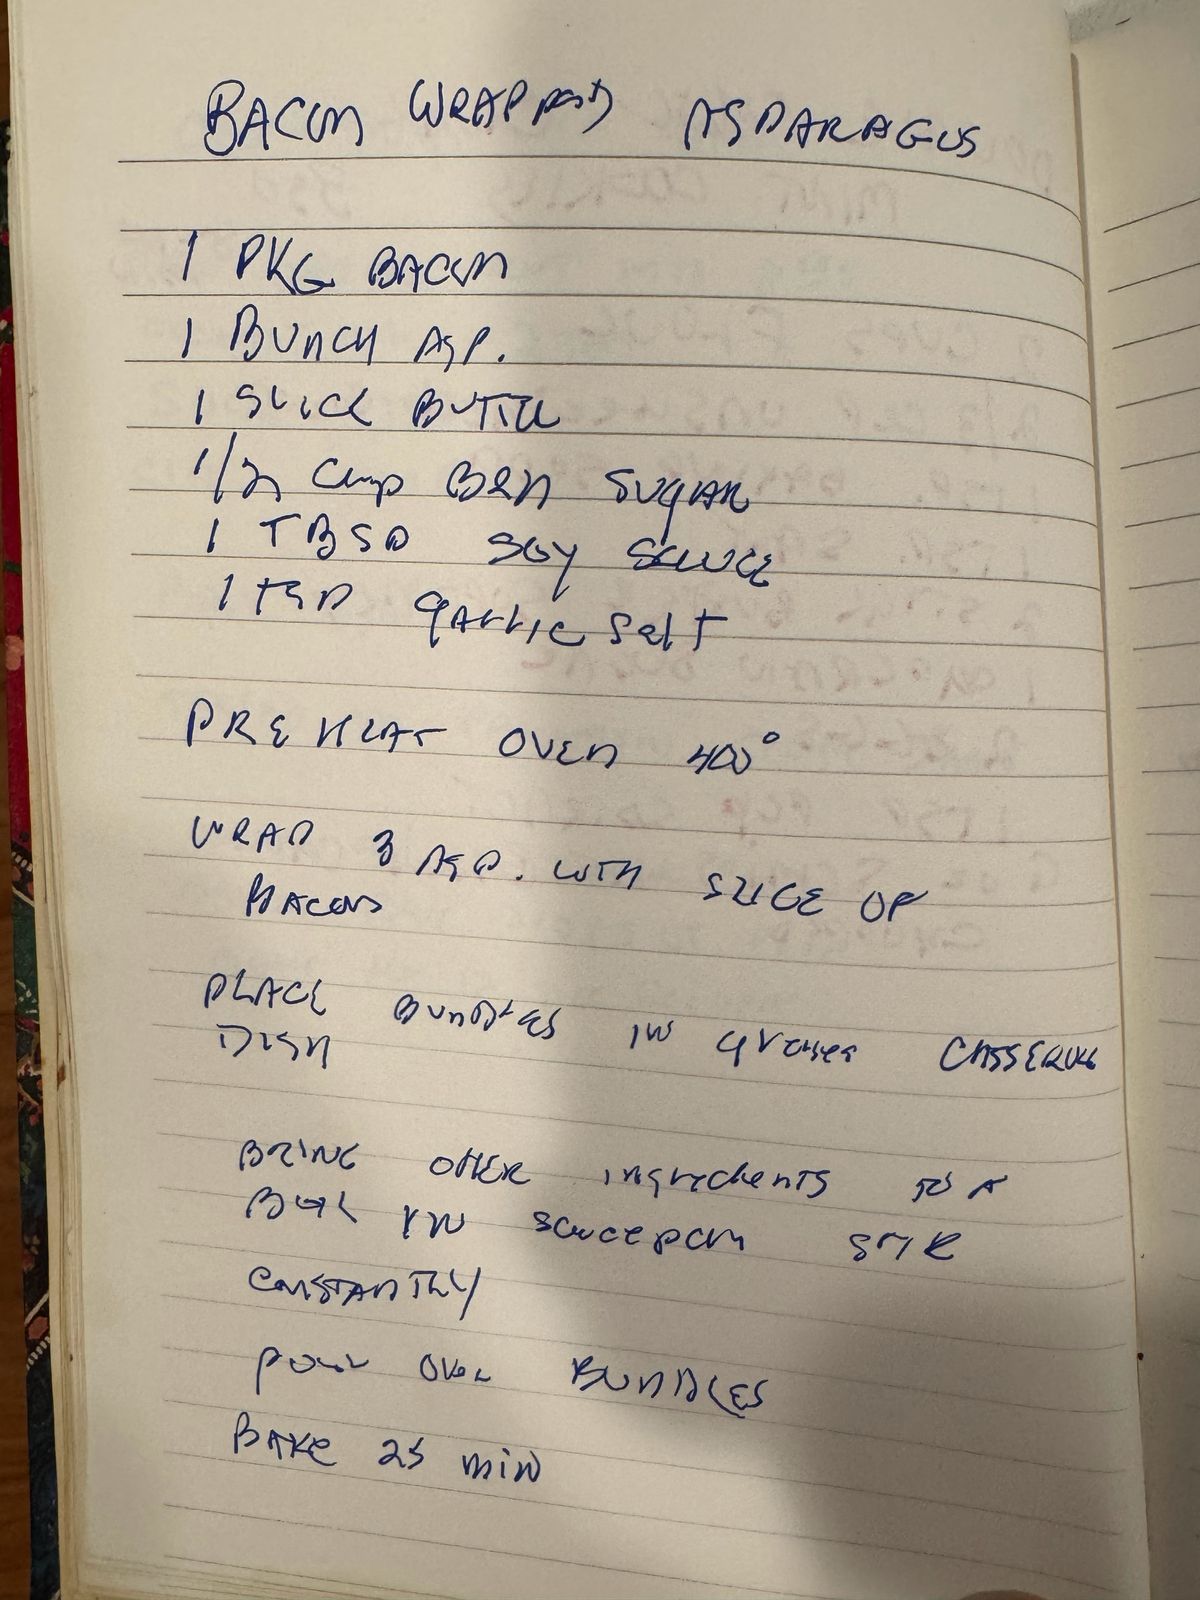 BACON WRAPPED ASPARAGUS
1 PKG BACON
1 BUNCH ASP.
1 SLICE BUTTER
1/2 Cup BRN SUGAR
1 TBSP SOY SAUCE
1 TSP GARLIC Salt
PREHEAT OVEN 400°
WRAP 3 ASP. WITH SLICE OF
BACON
PLACE BUNDLES IN GREASED CASSEROLE
DISH
BRING OTHER ingredients TO A
BOIL IN saucepan STIR
CONSTANTLY
POUR OVER BUNDLES
BAKE 25 MIN